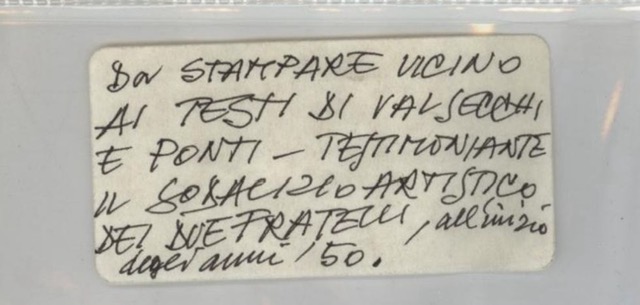 Da STAMPARE VICINO
AI TESTI DI VALSECCHI
E PONTI — TESTIMONIANTE
IL SODALIZIO ARTISTICO
DEI DUE FRATELLI, all'inizio
degli anni '50.